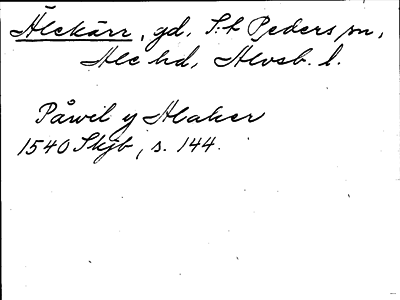 Älekärr, gd, S:t Peders sn,
Ale hd, Älvsb. l.
Påwil y Alaker
1540 Skjb, s. 144.